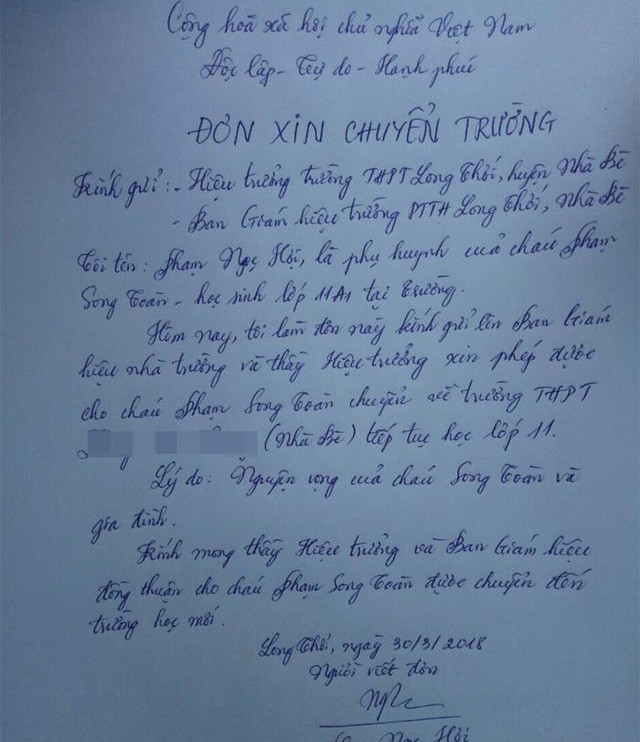 Cộng hoà xã hội chủ nghĩa Việt Nam
Độc lập - Tự do - Hạnh phúc
ĐƠN XIN CHUYỂN TRƯỜNG
Kính gửi: - Hiệu trưởng trường THPT Long Thới, huyện Nhà Bè
- Ban Giám hiệu trường PTTH Long Thới, Nhà Bè
Tôi tên: Phạm Ngọc Hội, là phụ huynh của cháu Phạm
Song Toàn - học sinh lớp 11A1 tại trường.
Hôm nay, tôi làm đơn này kính gửi lên Ban Giám
hiệu nhà trường và thầy Hiệu trưởng xin phép được
cho cháu Phạm Song Toàn chuyển về trường THPT
(Nhà Bè) tiếp tục học lớp 11.
Lý do: Nguyện vọng của cháu Song Toàn và
gia đình.
Kính mong thầy Hiệu trưởng và Ban Giám hiệu
đồng thuận cho cháu Phạm Song Toàn được chuyển đến
trường học mới.
Long Thới, ngày 30/3/2018
Người viết đơn
Ngọc Hội